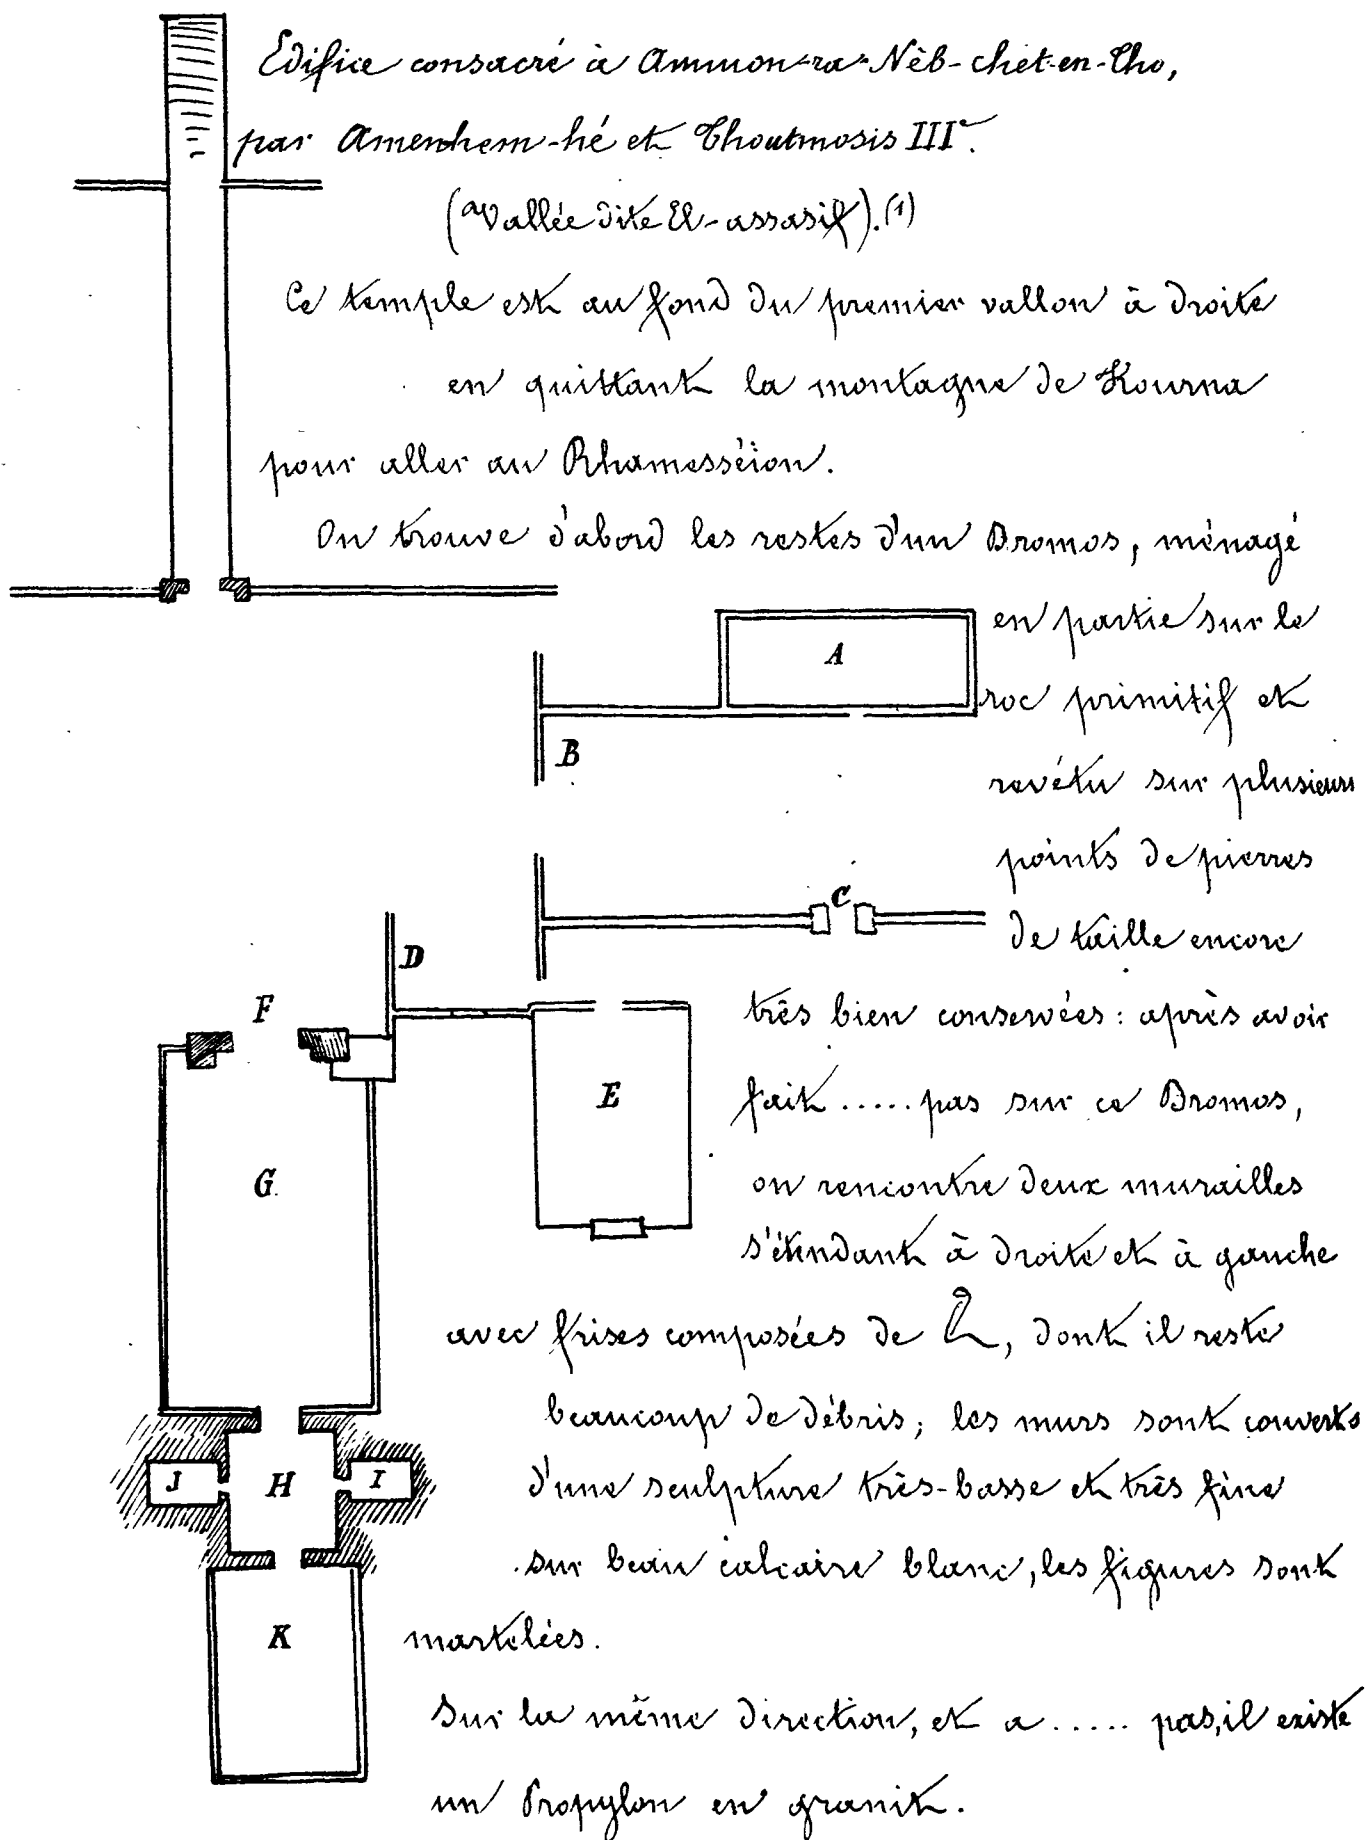 Edifice consacré à Ammon-ra-Nèb-chet-en-tho,
par Amenhem-hé et Thoutmosis IIIe.
(Vallée dite El-assasif).(1)
Ce temple est au fond du premier vallon à droite
en quittant la montagne de Kourna
pour aller au Rhamesséion.
On trouve d'abord les restes d'un Dromos, ménagé
en partie sur le
A
roc primitif et
B
revétu sur plusieurs
points de pierres
C
de taille encore
D
très bien conservées: après avoir
F
fait ..... pas sur ce Dromos,
E
on rencontre deux murailles
G
s'étendant à droite et à gauche
avec frises composées de , dont il reste
beaucoup de débris; les murs sont couverts
J H I
d'une sculpture très-basse et très fine
sur beau calcaire blanc, les figures sont
K
martelées.
Sur la même direction, et a ..... pas, il existe
un Propylon en granit.